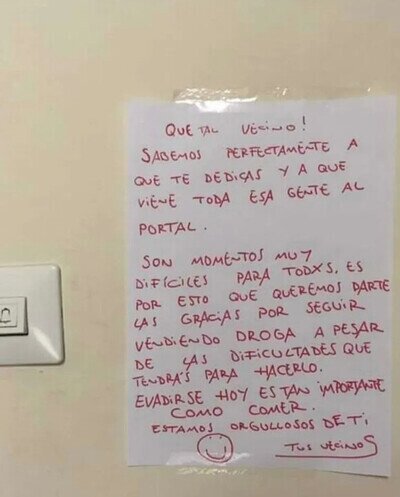 QUE TAL VECINO!
SABEMOS PERFECTAMENTE A
QUE TE DEDICAS Y A QUE
VIENE TODA ESA GENTE AL
PORTAL.
SON MOMENTOS MUY
DIFÍCILES PARA TODXS, ES
POR ESTO QUE QUEREMOS DARTE
LAS GRACIAS POR SEGUIR
VENDIENDO DROGA A PESAR
DE LAS DIFICULTADES QUE
TENDRÁS PARA HACERLO.
EVADIRSE HOY ES TAN IMPORTANTE
COMO COMER.
ESTAMOS ORGULLOSOS DE TI,
TUS VECINOS